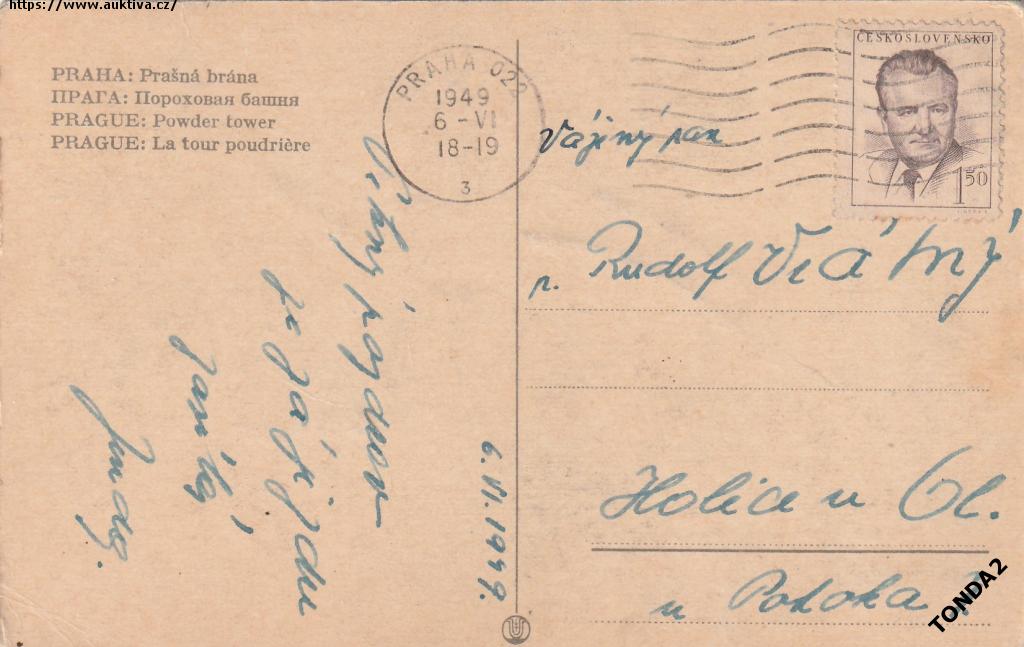 https://www.auktiva.cz/
PRAHA: Prašná brána
ПРАГА: Пороховая башня
PRAGUE: Powder tower
PRAGUE: La tour poudrière
PRAHA 022
1949
6 - VI
18-19
3
ČESKOSLOVENSKO
1 50
Vážený pan
p. Rudolf Vrátný
Holice u Ol.
u Potoka
pozdrav
ze zájezdu
6. VI. 1949.
TONDA2